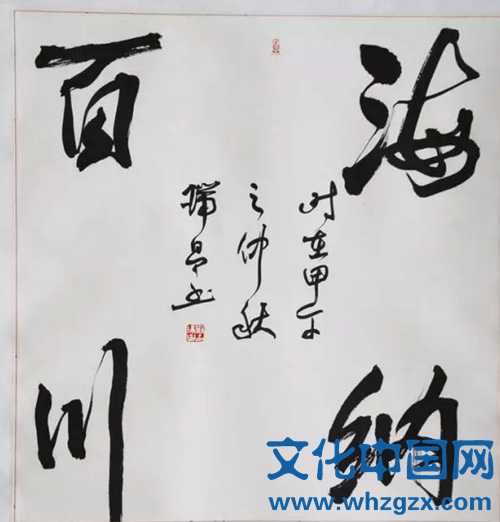 海纳
百川
时在甲午
之仲秋
瑞昌书
文化中国网
www.whzgzx.com